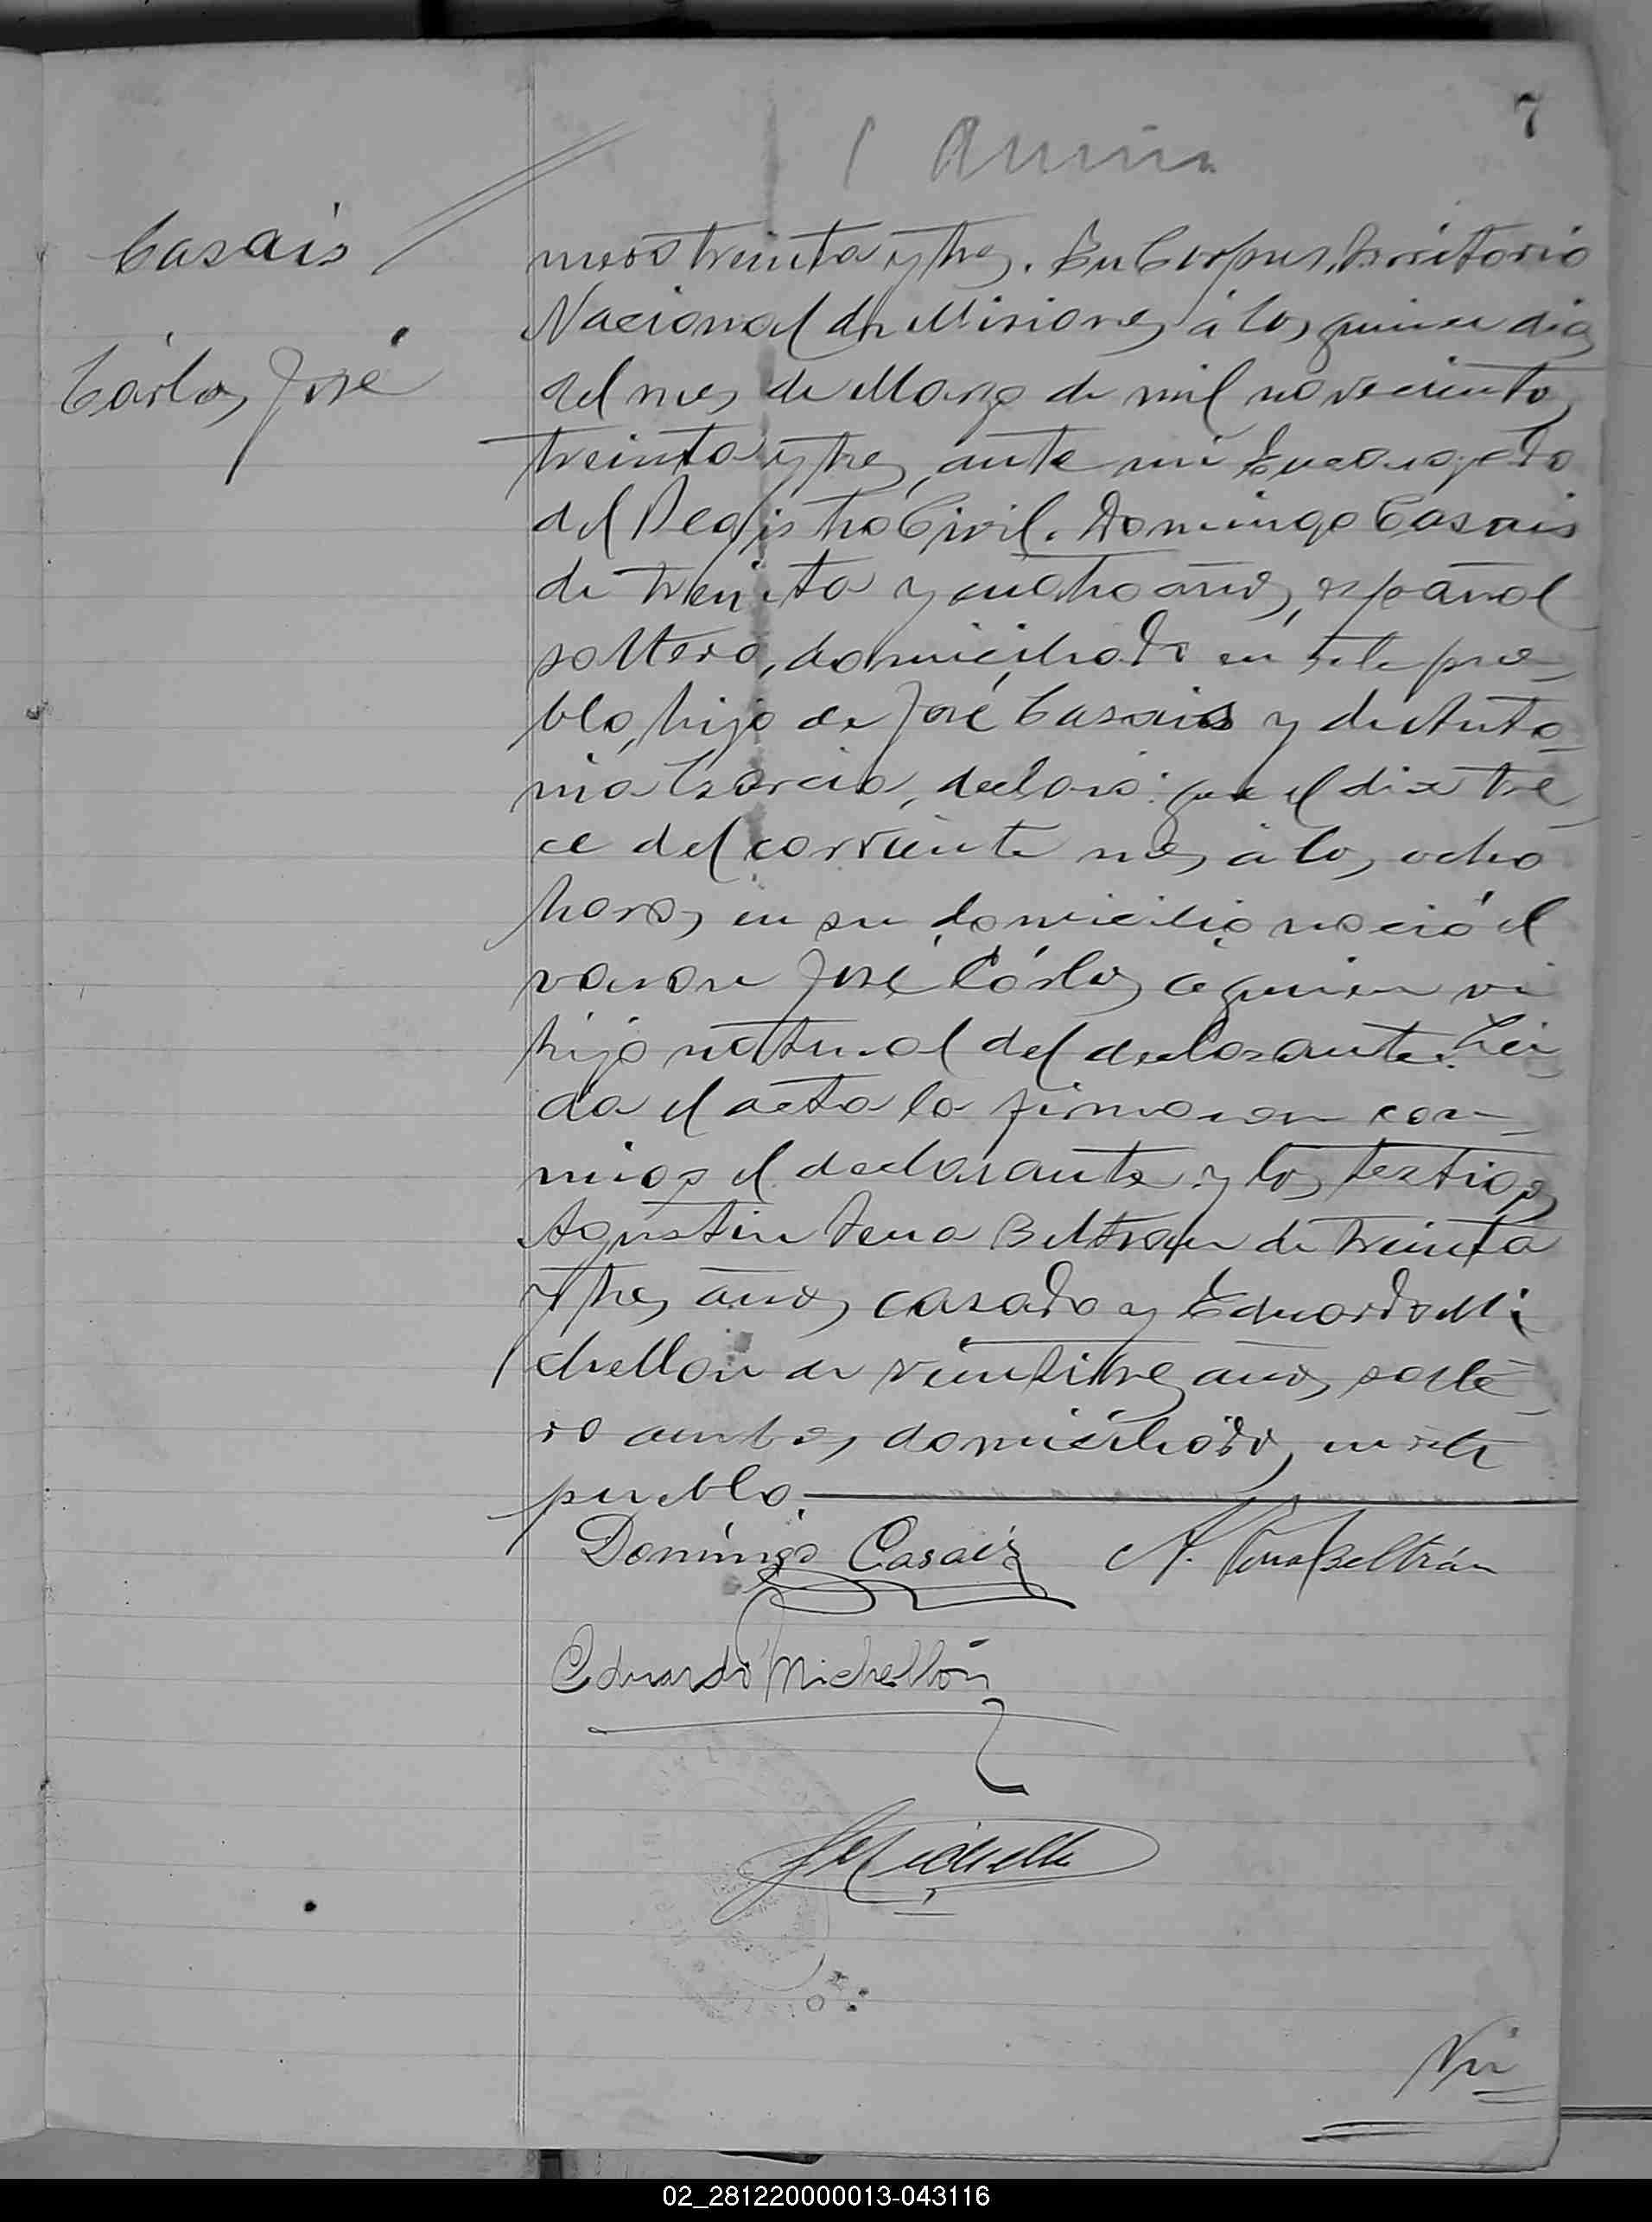 7
Casais
Cárlos José
mero treinta y tres. En Corpus, Territorio
Nacional de Misiones, á los quince dias
del mes de Marzo de mil novecientos
treinta y tres, ante mi Encargado
del Registro Civil. Domingo Casais
de treinta y cuatro años, español
soltero, domiciliado en este pue-
blo, hijo de José Casais y de Anto-
nia Garcia, declaró: que el dia tre-
ce del corriente mes, á las ocho
horas, en su domicilio nació el
varon José Cárlos, a quien vi
hijo natural del declarante. Lei-
da el acta la firmaron con-
migo el declarante y los testigos
Agustin Pena Beltran de treinta
y tres años, casado y Eduardo Mi
chellon de veintitres años, solte-
ro ambos, domiciliados, en este
pueblo.
Domingo Casais A. Pena Beltrán
Eduardo Michellón
Nú
02_281220000013-043116